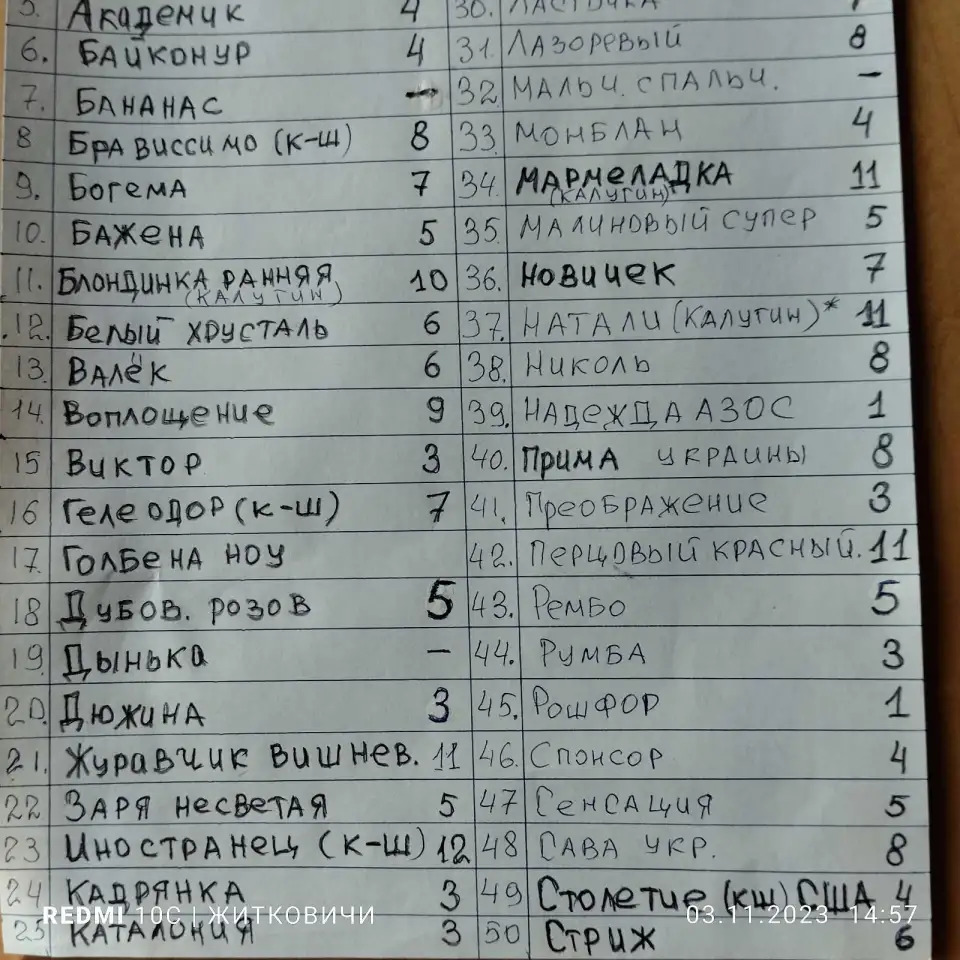 5. Академик 4
6. Байконур 4
7. Бананас —
8 Брависсимо (к-ш) 8
9. Богема 7
10. Бажена 5
11. Блондинка ранняя 10
(Калугин)
12. Белый хрусталь 6
13. Валёк 6
14. Воплощение 9
15 Виктор 3
16 Гелеодор (к-ш) 7
17. Голбена ноу
18 Дубов. розов 5
19 Дынька —
20. Дюжина 3
21. Журавчик вишнев. 11
22 Заря несветая 5
23 Иностранец (к-ш) 12
24 Кадрянка 3
25 Каталония 3
30. Ласточка
31. Лазоревый 8
32 Мальч. спальч. —
33 Монблан 4
34. Мармеладка 11
(Калугин)
35. Малиновый супер 5
36. Новичек 7
37. Натали (Калугин)* 11
38. Николь 8
39. Надежда АЗОС 1
40. Прима Украины 8
41. Преображение 3
42. Перцовый красный. 11
43. Рембо 5
44. Румба 3
45. Рошфор 1
46. Спонсор 4
47 Сенсация 5
48 Сава Укр. 8
49 Столетие (кш) США 4
50 Стриж 6
REDMI 10C | ЖИТКОВИЧИ
03.11.2023 14:57